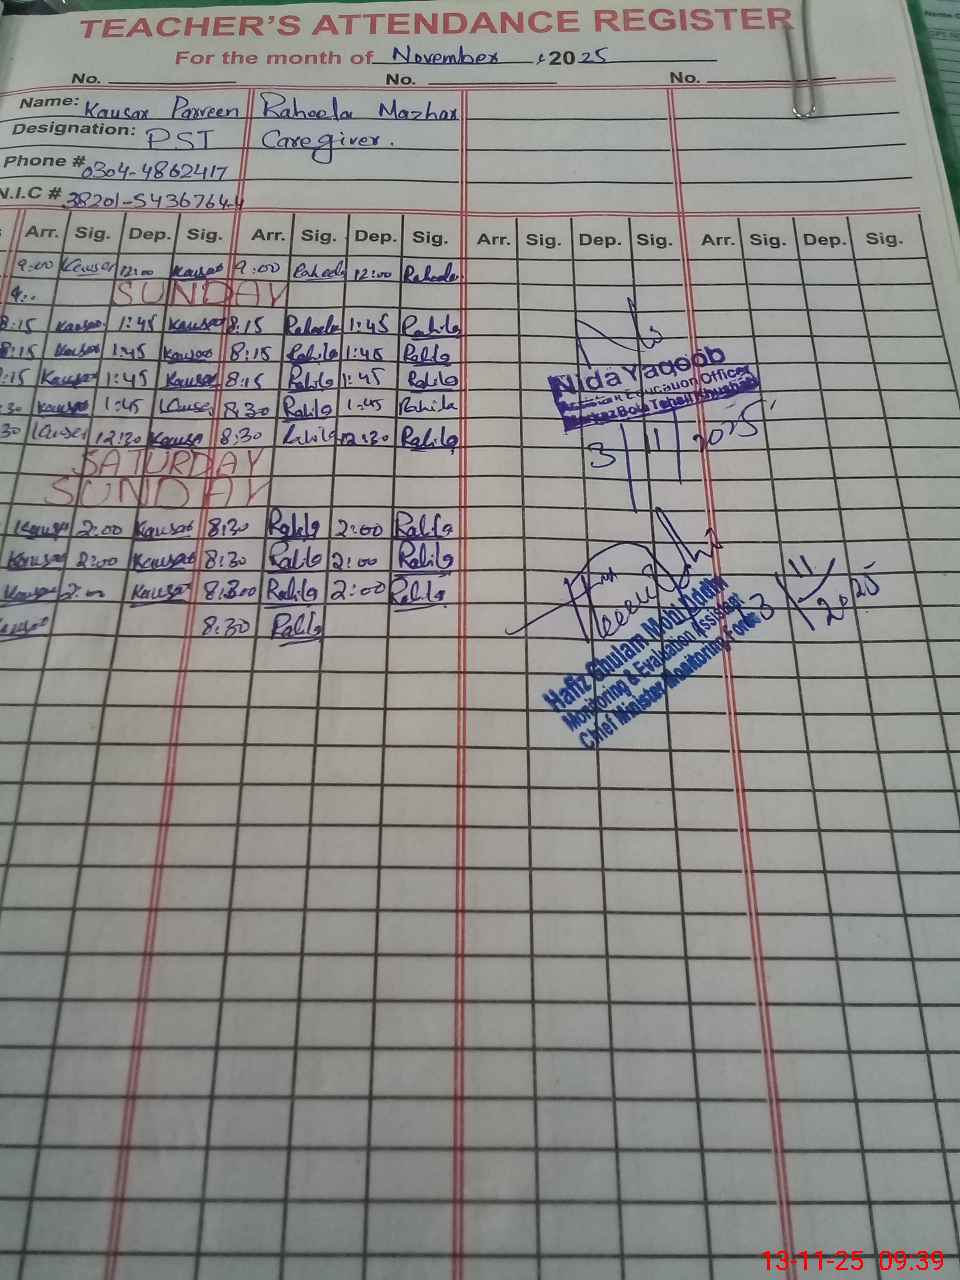 TEACHER'S ATTENDANCE REGISTER
For the month of November, 2025
No. No. No.
Name: Kausar Parveen Raheela Mazhar
Designation: PST Caregiver.
Phone # 0304-4862417
N.I.C # 38201-5436764-4
Arr. Sig. Dep. Sig. Arr. Sig. Dep. Sig. Arr. Sig. Dep. Sig. Arr. Sig. Dep. Sig.
9:00 Kausar 12:00 Kausar 9:00 Raheela 12:00 Raheela
SUNDAY
8:15 Kausar 1:45 Kausar 8:15 Raheela 1:45 Rahila
8:15 Kausar 1:45 Kausar 8:15 Rahila 1:45 Rahila
:15 Kausar 1:45 Kausar 8:15 Rahila 1:45 Rahila
:30 Kausar 1:45 Kausar 8:30 Rahila 1:45 Rahila
30 Kausar 12:30 Kausar 8:30 Rahila 12:30 Rahila
SATURDAY
SUNDAY
Kausar 2:00 Kausar 8:30 Rahila 2:00 Rahila
Kausar 2:00 Kausar 8:30 Rahila 2:00 Rahila
Kausar 2:00 Kausar 8:300 Rahila 2:00 Rahila
Kausar 8:30 Rahila
Nida Yaqoob
Assistant Education Officer
Markaz Bola Tehsil Khushab
3/11/2025
Hafiz Ghulam Mohi Uddin
Monitoring & Evaluation Assistant
Chief Minister Monitoring Force
3/11/2025
13-11-25 09:39